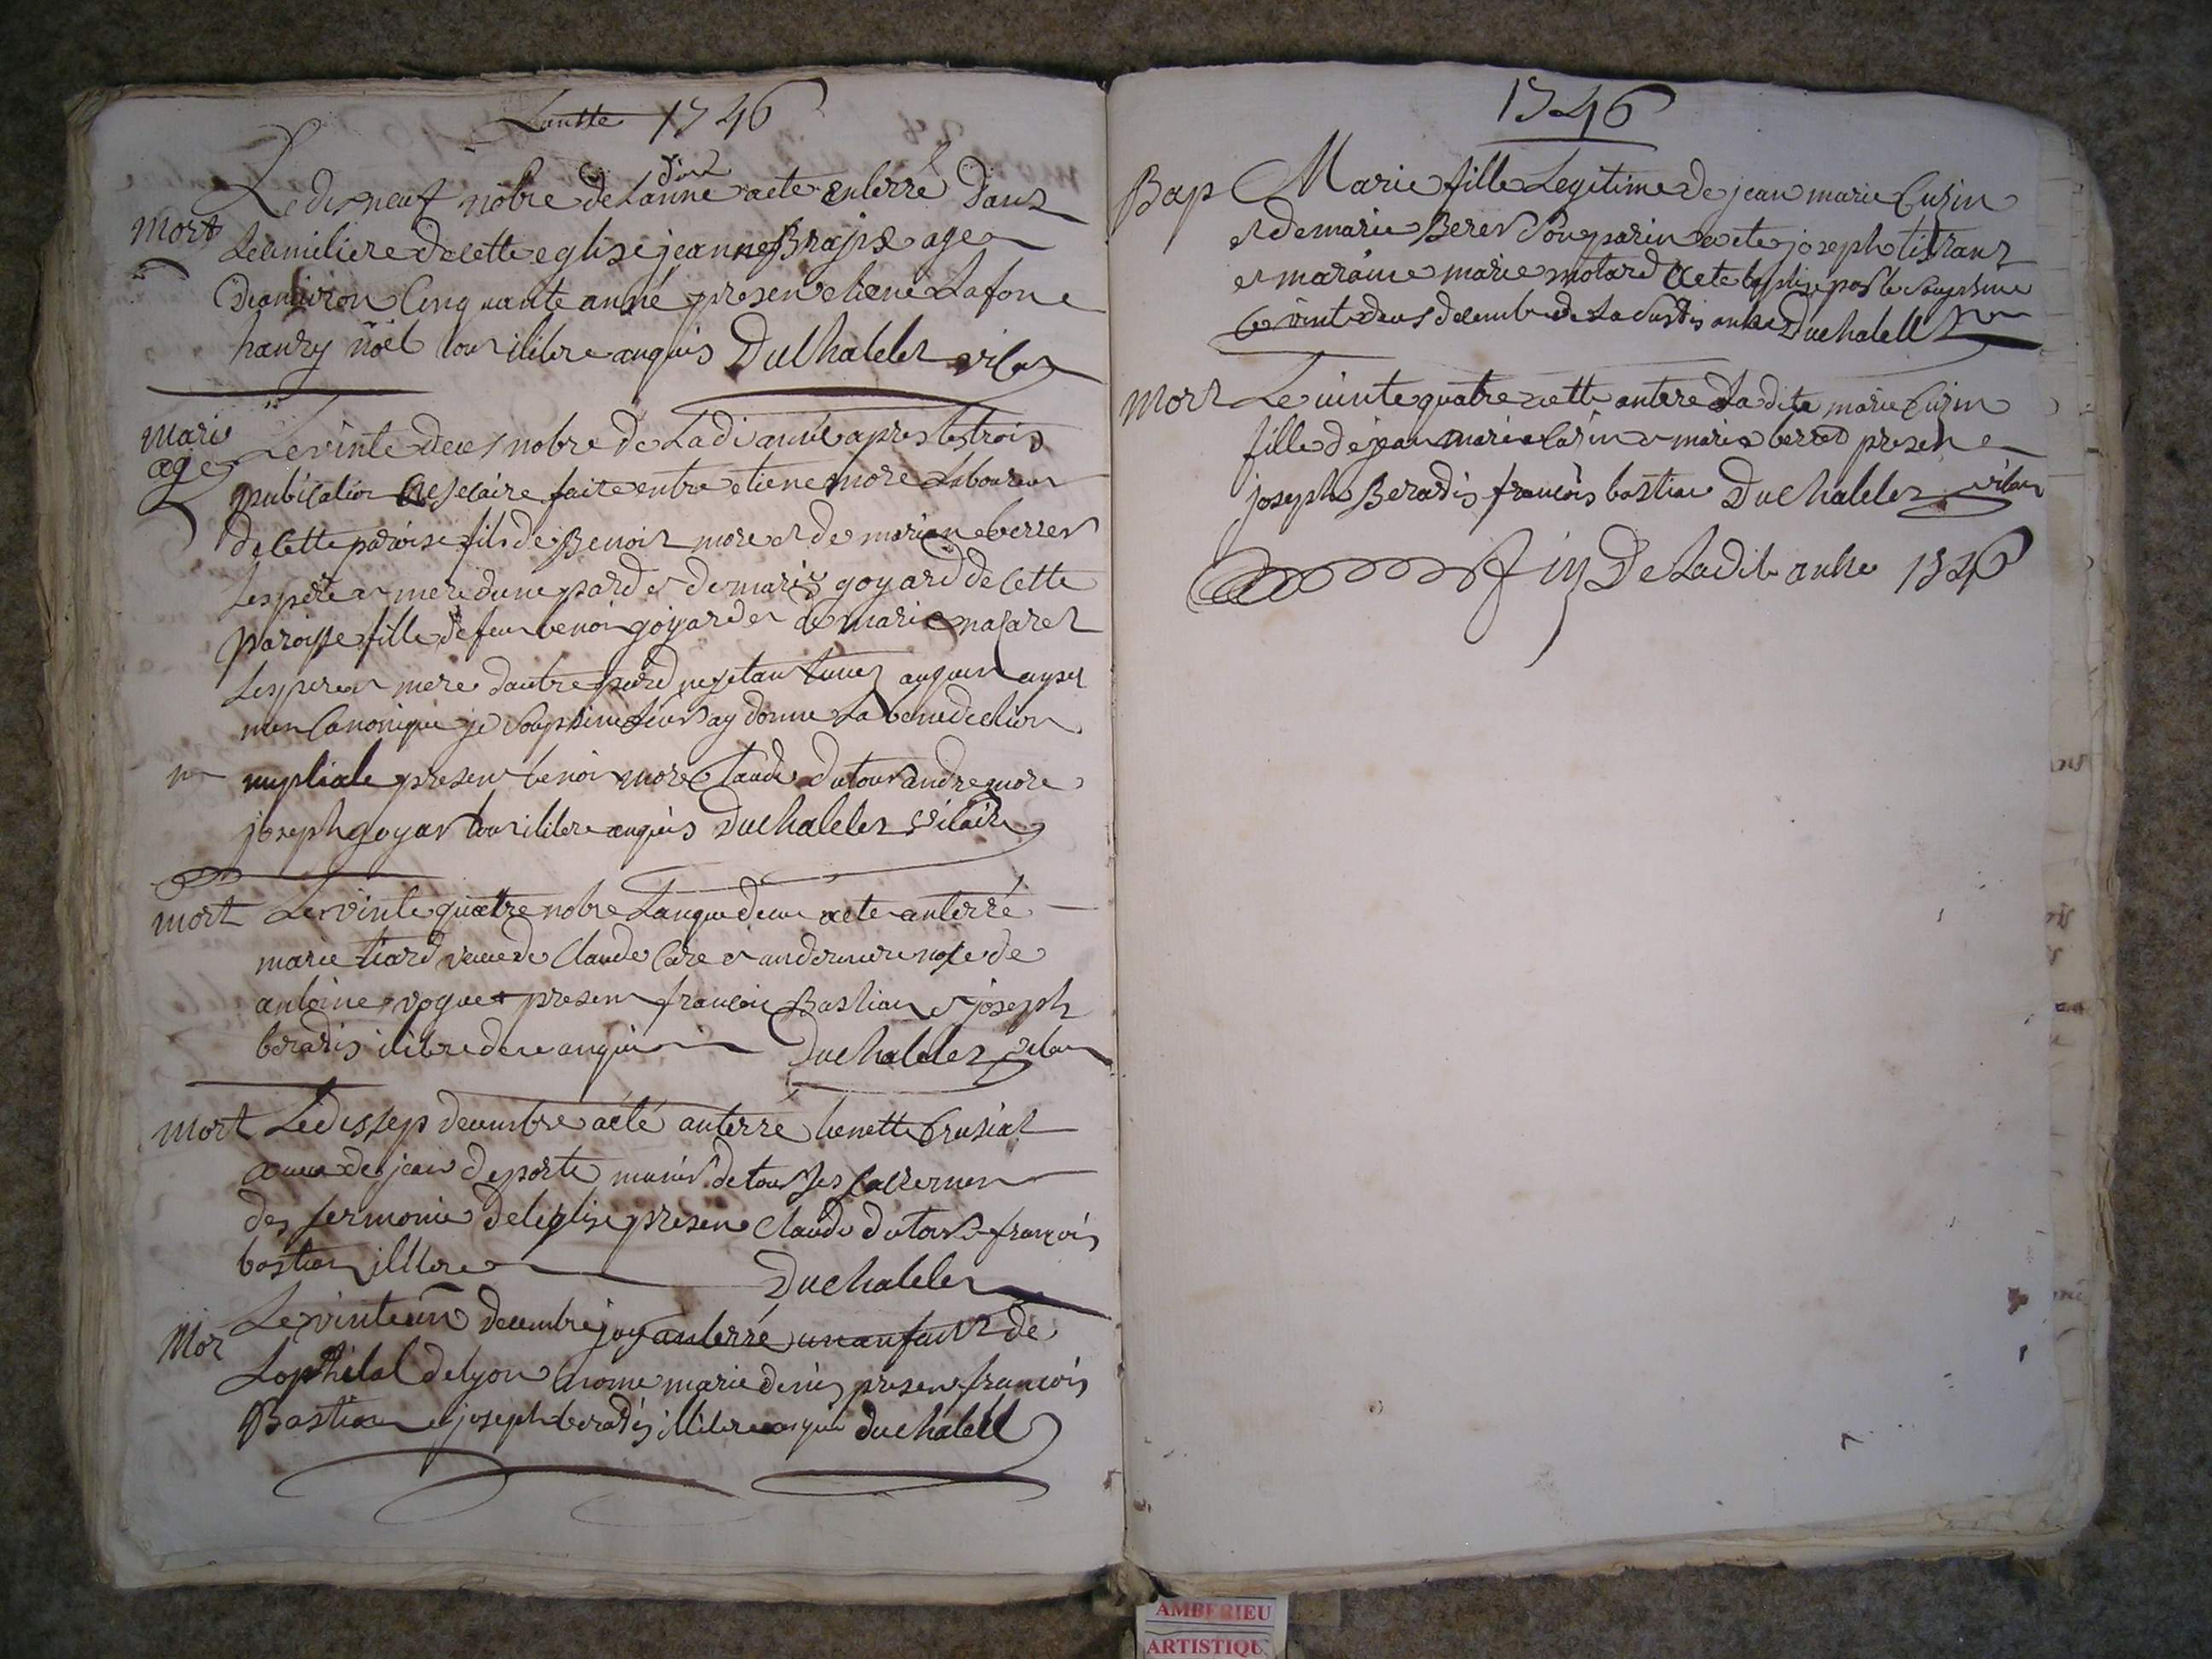 Lantte 1746
Le disneuf nobre de Lanne dite a ete enterré dans
mort Le cimitiere de cette eglise jeanne age
danviron Cinquante anné presen etiene Lafon e
haury noël tous ilitere anquis Duchatelet vicaire
mari Le vinte deus nobre de La di année apres les trois
age publication faite entre etiene more Laboureur
de cette paroise fils de Benoit more et de berret
Les pere et mere dune pard et de marie goyard de cette
paroisse fille de feu benoi goyard et de marie nasaret
Les pere et mere dautre pard nestan aucun anpes
men Canonique je Sousine Leur ay donne La benediction
nuptiale presen benoi more Claude dutour andre more
joseph goyar tous ilitere anquis Duchatelet vicaire
mort Le vinte quatre nobre a ete anterré
marie tiard veuve de Claude et an derniere nose de
antoine presen francois Bastian et joseph
beradis ilitere de ce anquis Duchatelet vicaire
mort Le dissep decembre a eté anterré benette
de jean deporte munis de tous Les Sacremen
des sermonie de leglise presen Claude dutour et françois
bastian illitere Duchatelet
Mor Le vinteun decembre jay anterré un anfant de
Lophital de lyon nome marie denis presen françois
Bastian et joseph beradis illitere anquis duchatell
1746
Bap Marie fille Legitime de jean marie Cusin
et de marie Beret Son parin a ete joseph titrant
et maraine marie motard a ete baptise par le Sousine
Le vint deus decembre de La Susdis année Duchatell
Mort Le vinte quatre a ette antere La dite marie Cusin
fille de jean marie Cusin et marie berret presen
joseph Beradis françois bastian Duchatelet vicair
fin De Ladite année 1746
AMBERIEU
ARTISTIQU